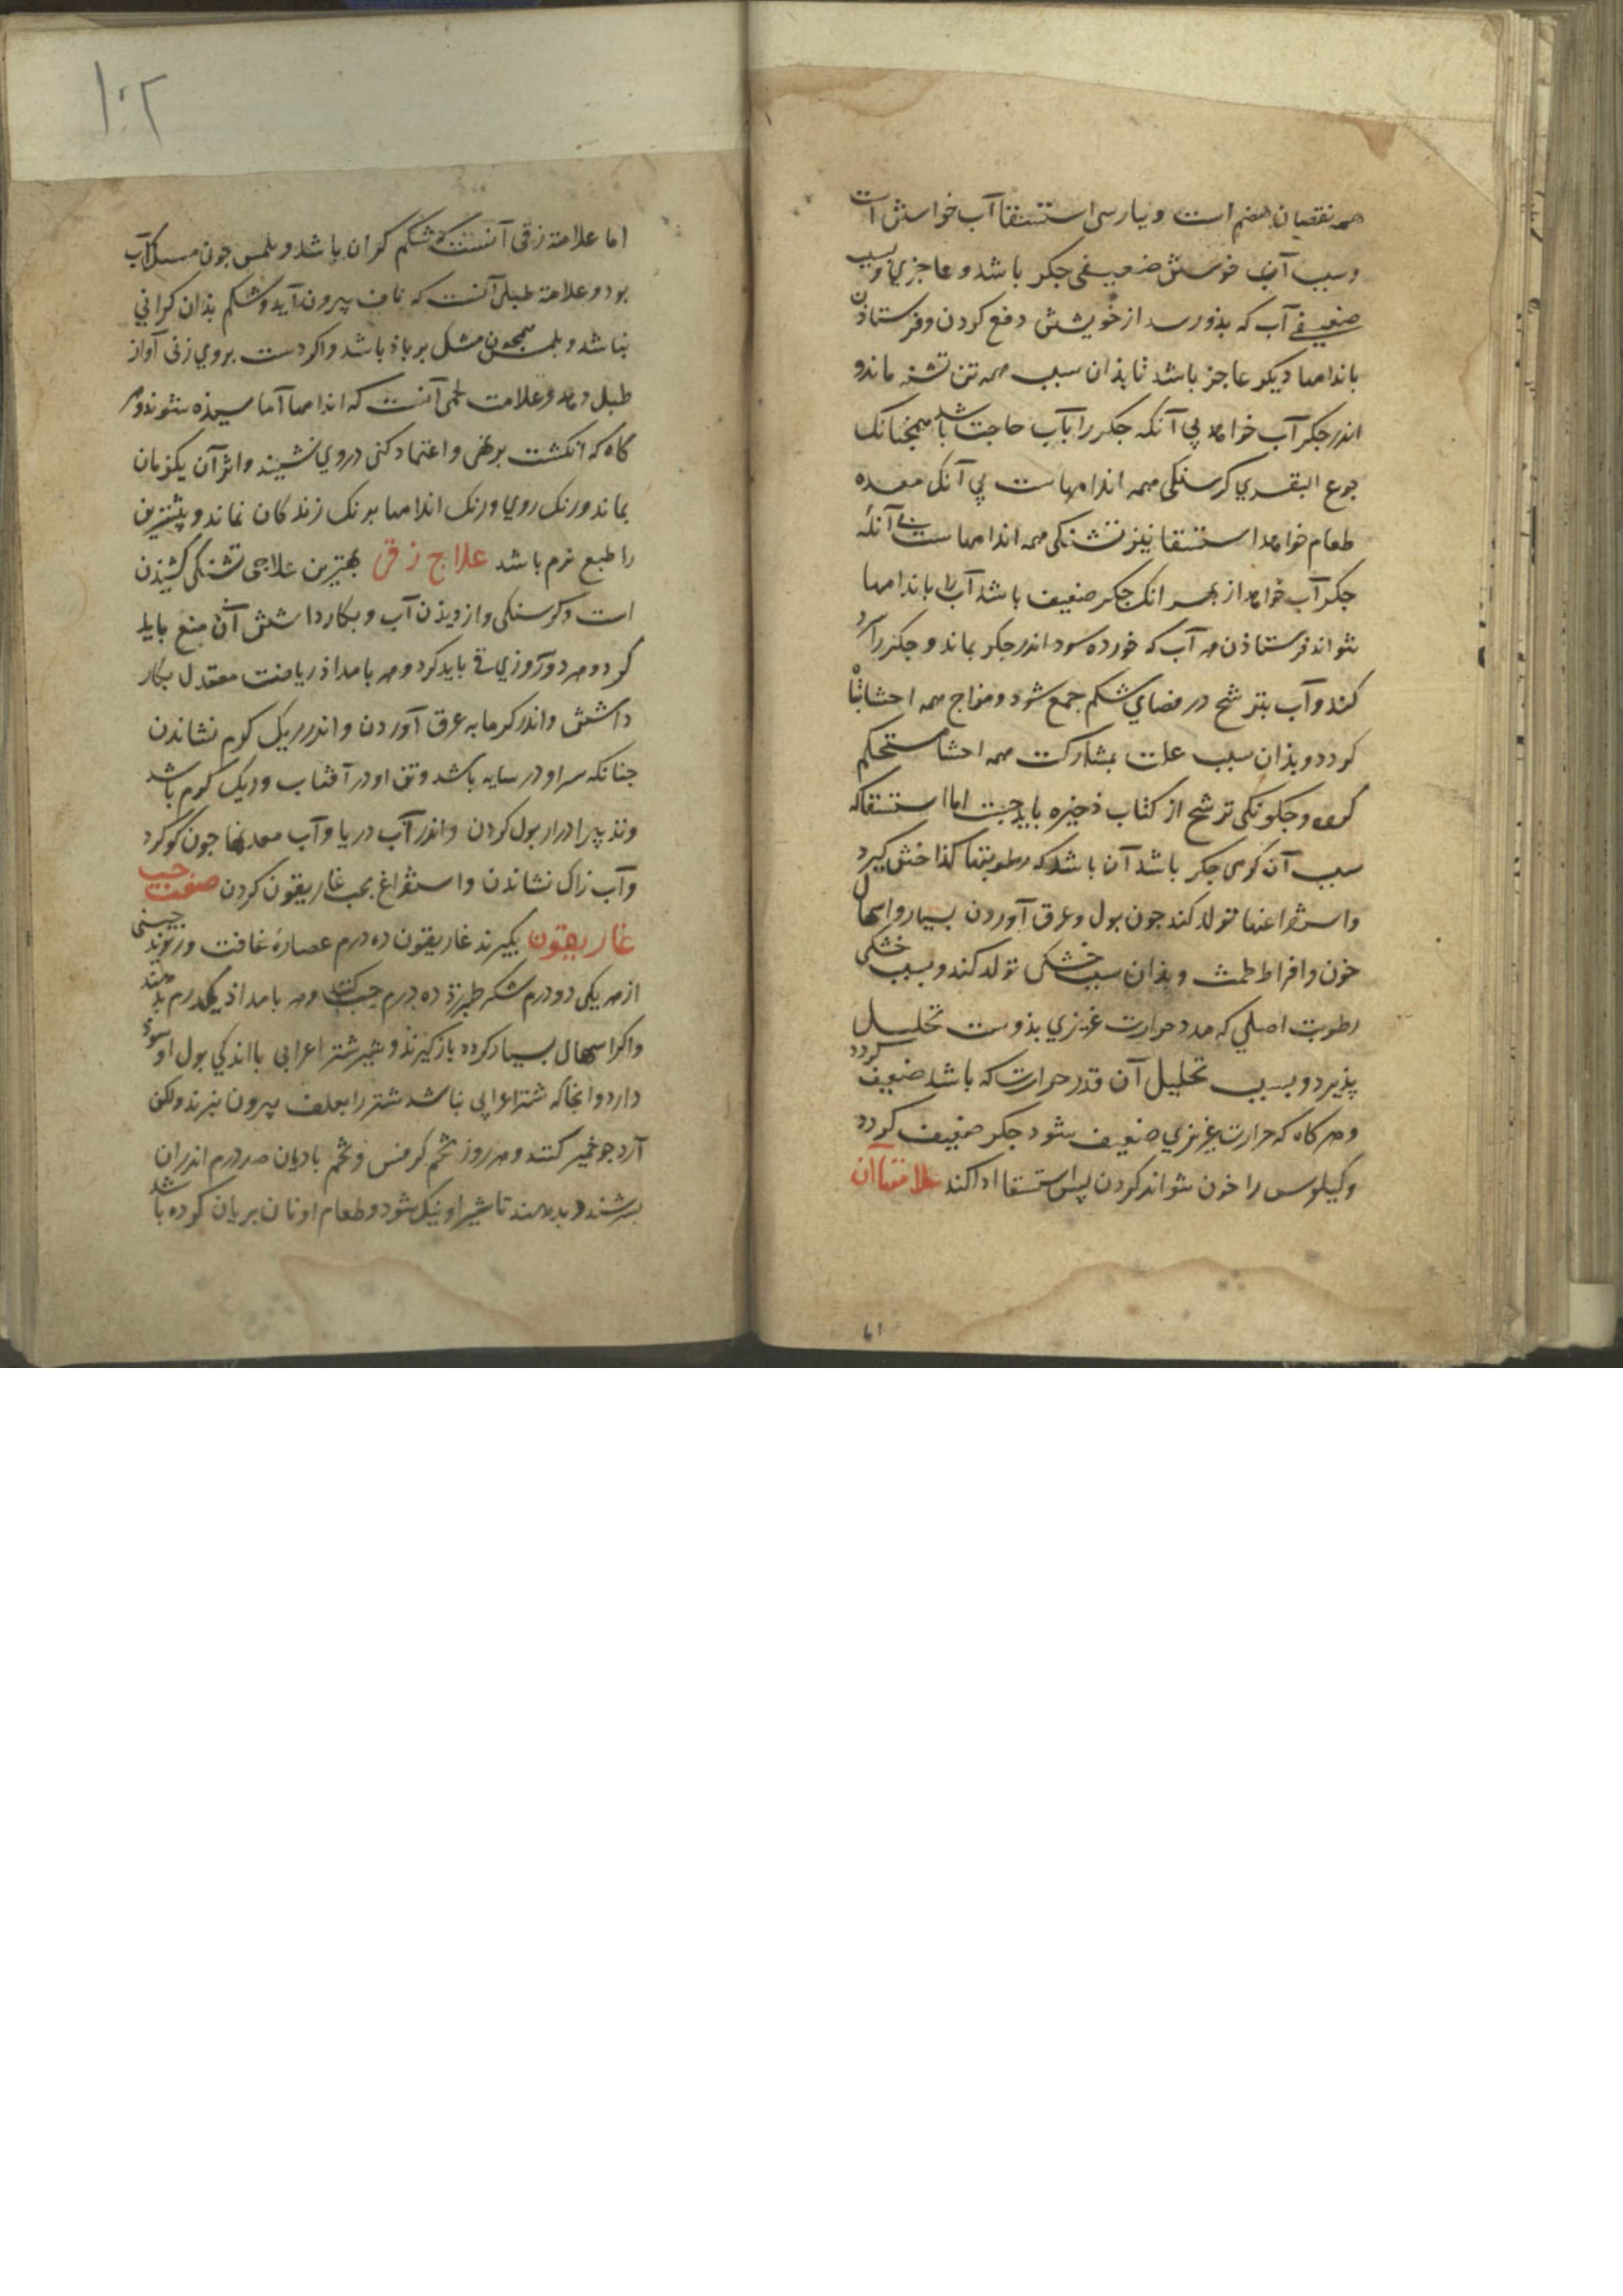 همه نقصان هضم است و بپارسی استسقا آب خواستن است
و سبب آب خوستن ضعیفی جکر باشد و عاجزی و بسبب
ضعیفی آب که بذو رسد از خویشتن دفع کردن و فرستاذن
باندامها دیکر عاجز باشد تا بذان سبب همه تن تشنه ماند و
اندر جکر آب خواهد بی آنکه جکر را بآب حاجت باشد همجنانک
جوع البقری کرسنکی همه اندامهاست بی آنک معده
طعام خواهد استسقا نیز تشنکی همه اندامهاست بی آنکه
جکر آب خواهد از بهر انک جکر ضعیف باشد آب را باندامها
نتواند فرستاذن هر آب که خورده سود اندر جکر بماند و جکر را سرد
کند و آب بترشح در فضای شکم جمع شود و مزاج همه احشا تباه
کردد و بذان سبب علت بمشارکت همه احشا مستحکم
کردد و جکونکی ترشح از کتاب ذخیره باید جست اما استسقا که
سبب آن کرمی جکر باشد آن باشد که رطوبتها کذاختن کیرد
واستفراغها تولد کند جون بول و عرق آوردن بسیار و اسهال
خون و افراط طمث و بذان سبب خشکی تولد کند و بسبب خشکی
رطوبت اصلی که مدد حرارت غریزی بذوست تحلیل
پذیرد و بسبب تحلیل آن قدر حرارت که باشد ضعیف کردد
و هر کاه که حرارت غریزی ضعیف شود جکر ضعیف کردد
و کیلوس را خون نتواند کردن پس باستسقا ادا کند علامتهاآن
۱۰۲
اما علامة زقی آنست که شکم کران باشد و بلمس جون مسک آب
بود و علامة طبلی آنست که ناف بیرون آید و شکم بذان کرانی
نباشد و بلمس همجون مشک بر باذ باشد و اکر دست بروی زنی آواز
طبل دهد و علامت لحمی آنست که اندامها آماسیذه شوند و هر
کاه که انکشت برنهی و اعتماد کنی دروی نشیند و اثر آن یکزمان
بماند و رنک روی و رنک اندامها برنک زندکان نماند و بیشترین
را طبع نرم باشد علاج زقی بهترین علاجی تشنکی کشیذن
است و کرسنکی و از دیذن آب و بکار داشتن آن منع باید
کرد و هر دو روزی قی باید کرد و هر بامداذ ریاضت معتدل بکار
داشتن و اندر کرمابه عرق آوردن و اندر ریک کرم نشاندن
جنانکه سر او در سایه باشد و تن او در آفتاب و ریک کرم باشد
و تذبیر ادرار بول کردن و اندر آب دریا و آب معدنها جون کوکرد
و آب زاک نشاندن و استفراغ بحب غاریقون کردن صفت حب
غاریقون بکیرند غاریقون ده درم عصارۀ غافت و ریوند جینی
از هر یکی دو درم شکر طبرزذ ده درم حب کنند و هر بامداذ یکدرم بدهند
و اکر اسهال بسیار کرده باز کیرند و شیر شتر اعرابی با اندکی بول او سوذ
دارد و انجا که شتر اعرابی نباشد شتر را بعلف بیرون نبرند و لکن
آرد جو خمیر کنند و هر روز تخم کرفس و تخم بادیان صد درم اندران
بسرشند و بدهند تا شیر او نیک شود و طعام او نان بریان کرده باشد